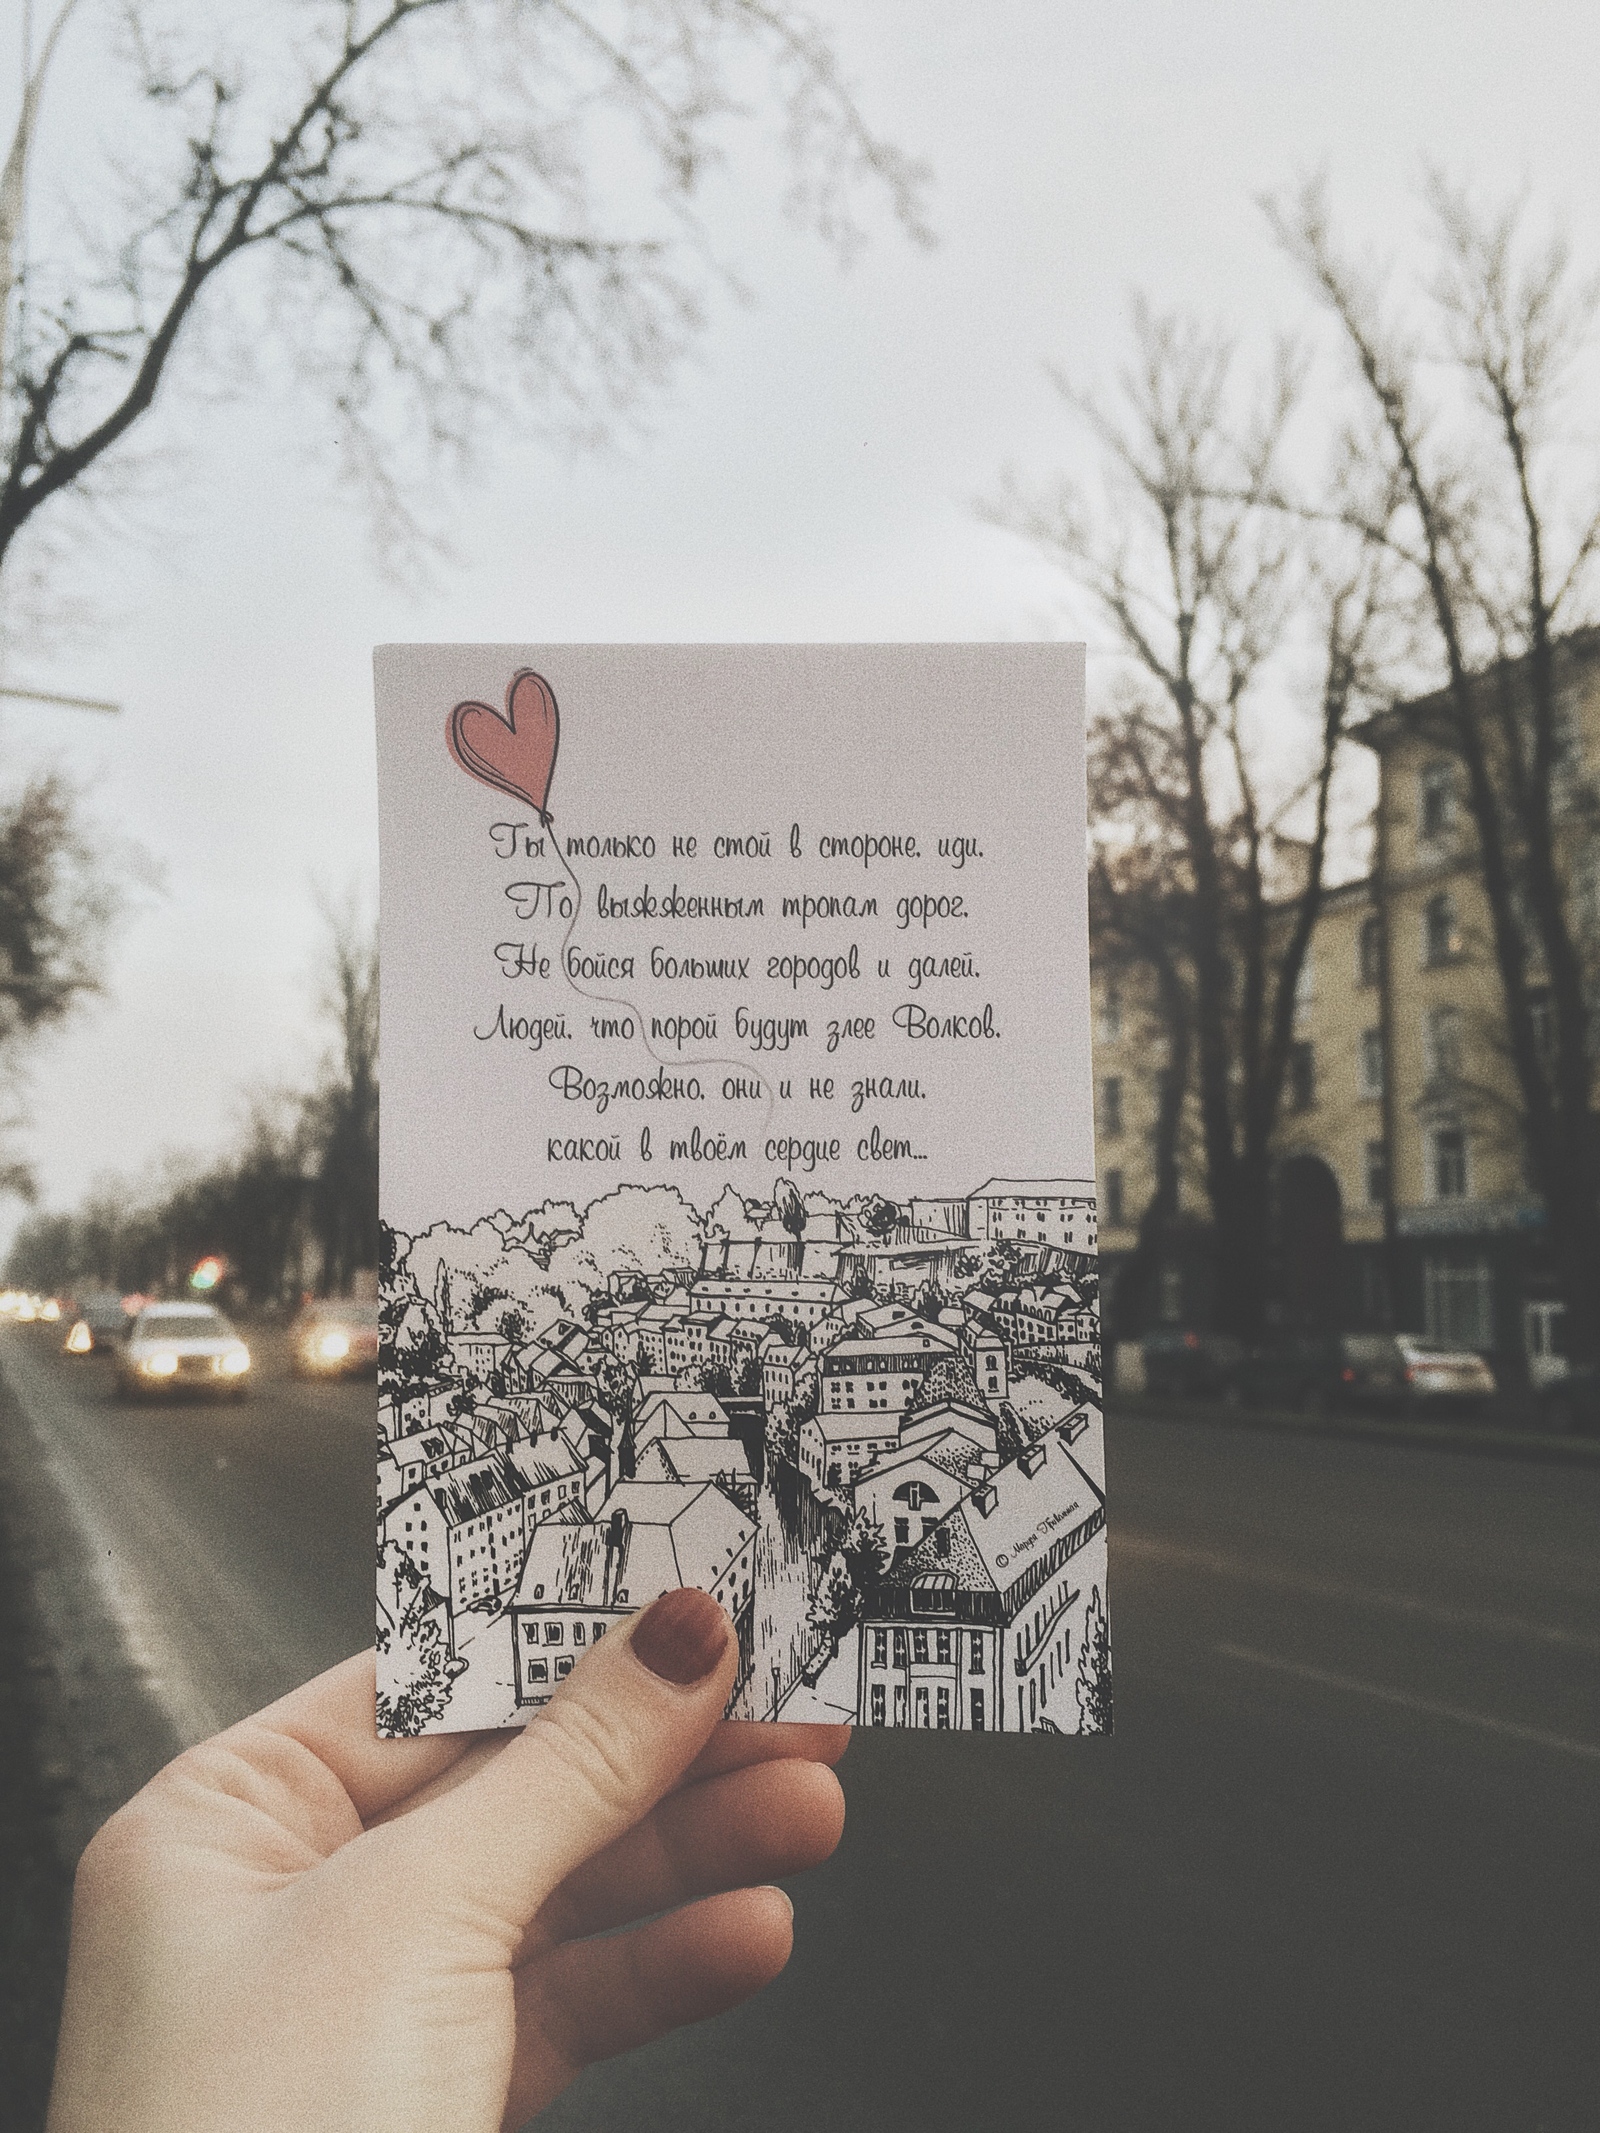 Ты только не стой в стороне, иди.
По выжженным тропам дорог.
Не бойся больших городов и далей,
Людей, что порой будут злее Волков.
Возможно, они и не знали,
какой в твоём сердце свет...